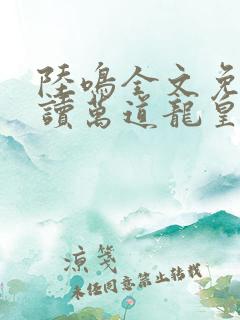 陸鳴全文免
讀萬道龍皇
涼箋
未经同意禁止转载